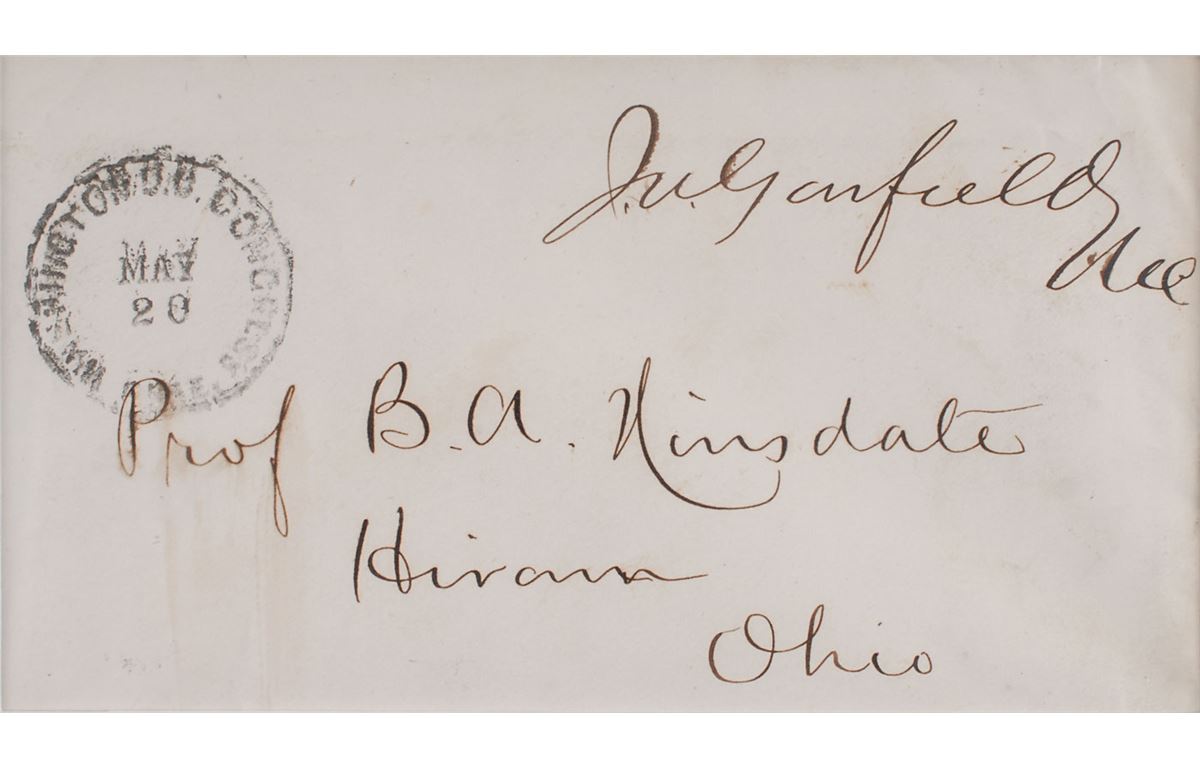 J.A. Garfield
MC
WASHINGTON D.C. CONGRESS
MAY
20
Prof B. A. Hinsdale
Hiram
Ohio